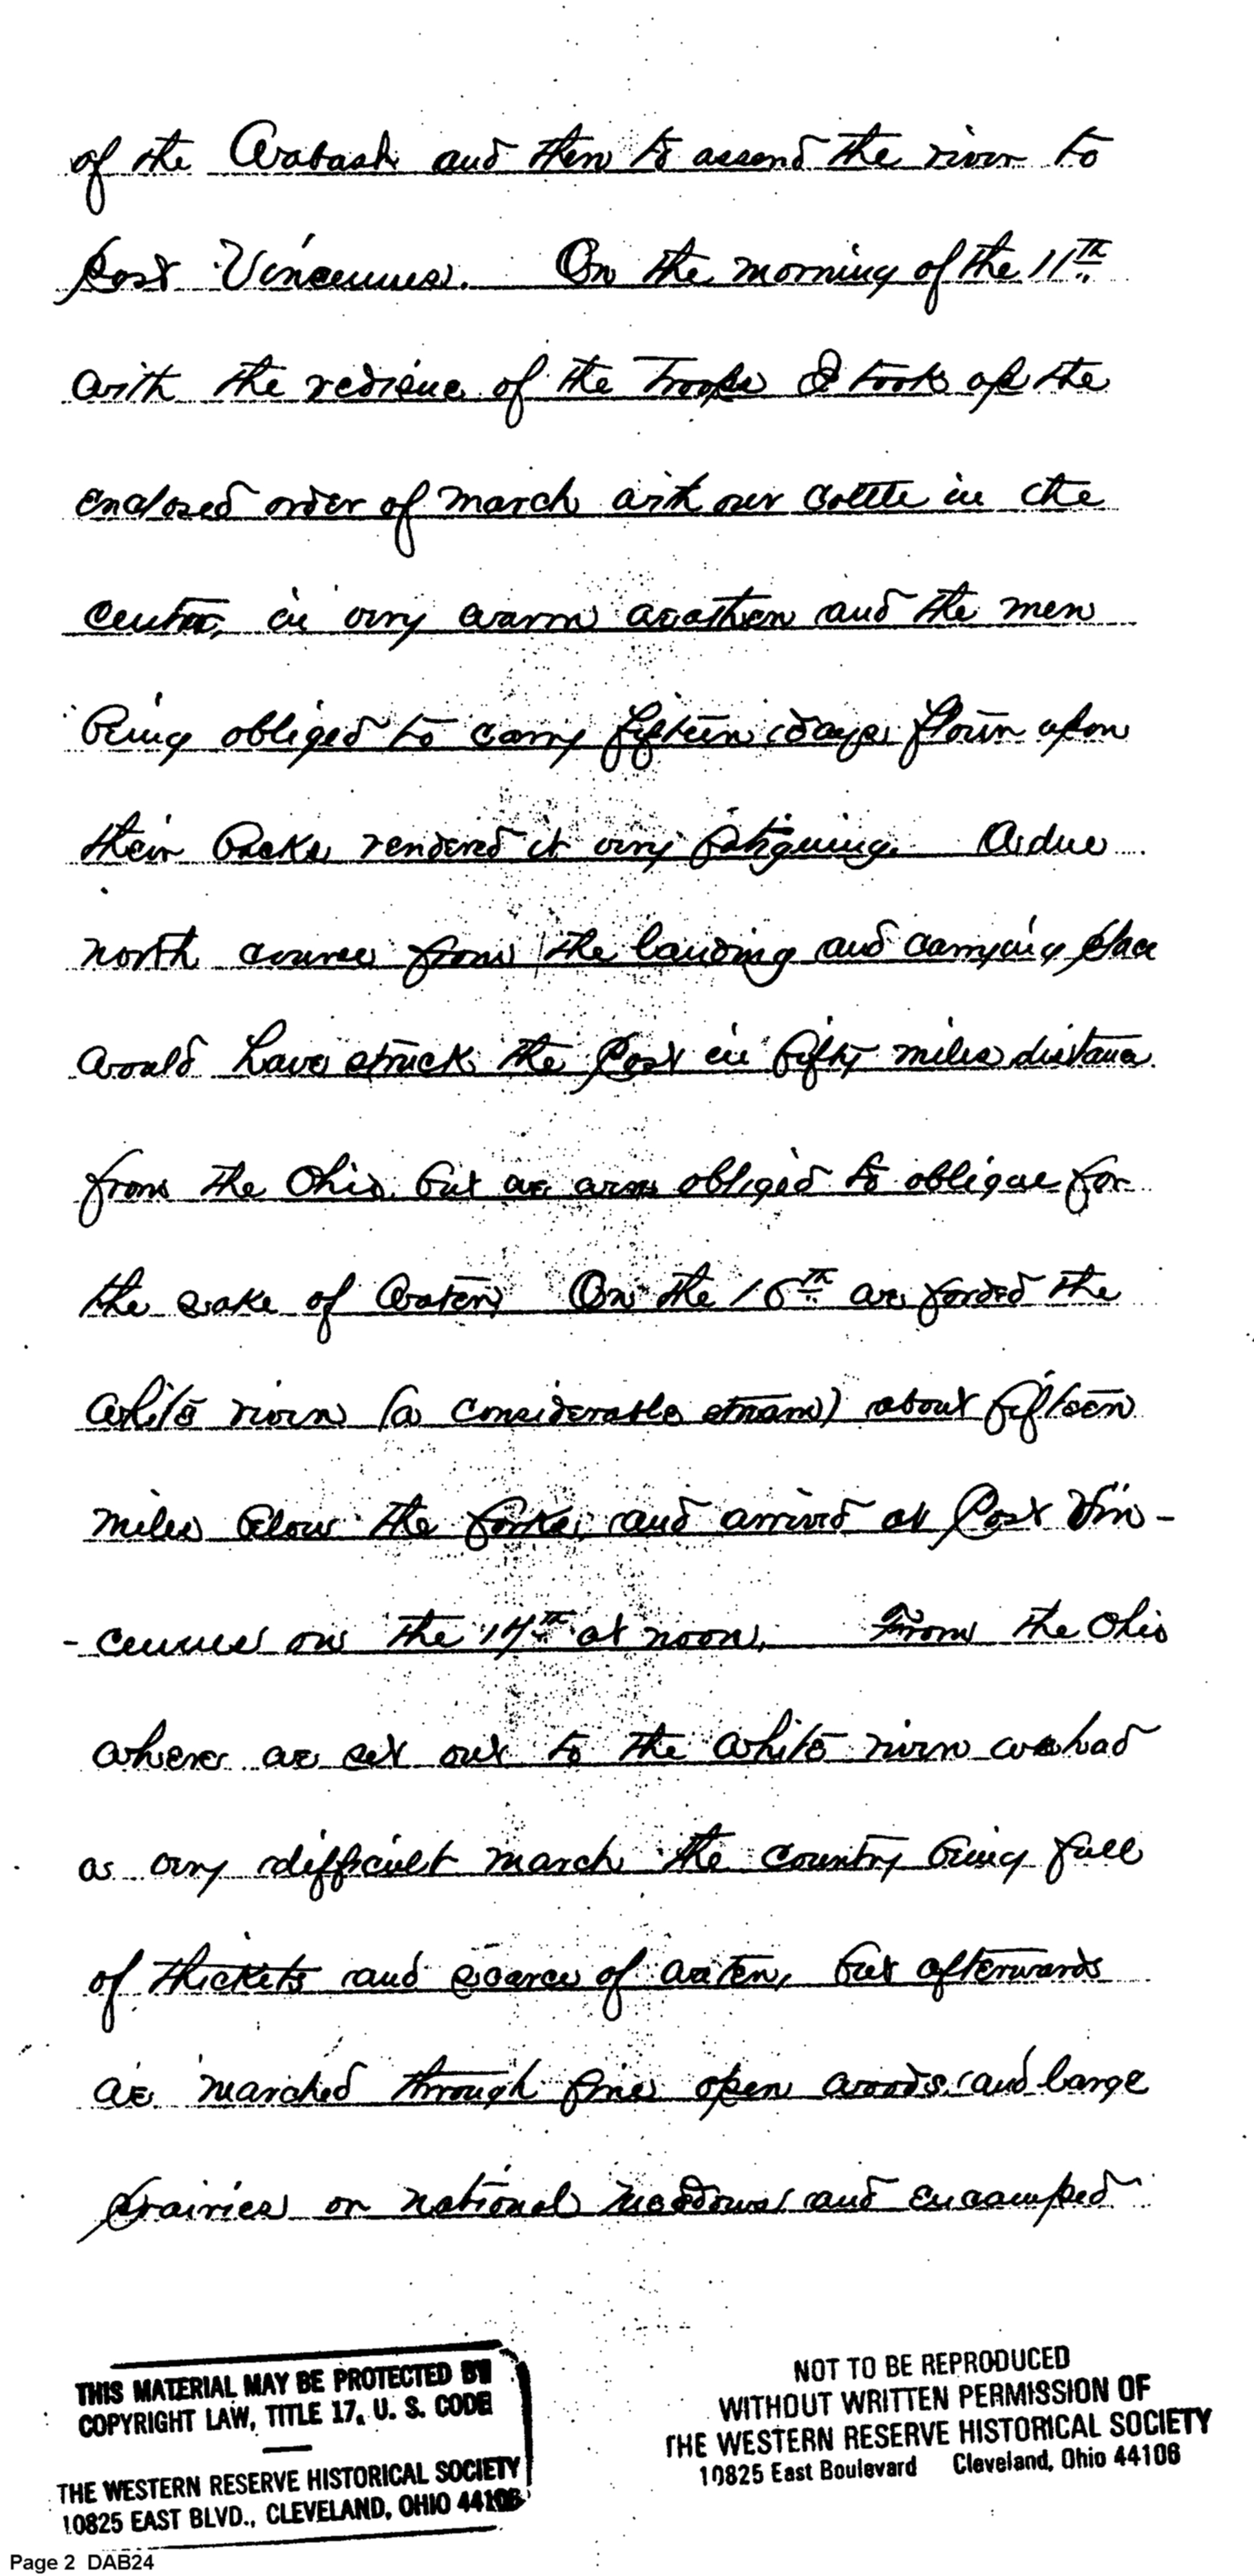 of the Wabash and then to assend the river to
Post Vincennes. On the morning of the 11th
with the redisue of the Troops I took up the
enclosed order of march with our cattle in the
center, in very warm weather and the men
being obliged to carry fifteen days flour upon
their backs rendered it very fatiguing. A due
north course from the landing and carrying place
would have struck the Post in fifty miles distance
from the Ohio, but we were obliged to oblique for
the sake of water, On the 16th we forded the
white river (a considerable stream) about fifteen
miles below the forks, and arrived at Post Vin-
-cennes on the 17th at noon. From the Ohio
where we set out to the white river we had
a very difficult march the country being full
of thickets and scarce of water, but afterwards
we marched through fine open woods and large
prairies or national meadows and encamped
THIS MATERIAL MAY BE PROTECTED BY
COPYRIGHT LAW, TITLE 17, U. S. CODE
THE WESTERN RESERVE HISTORICAL SOCIETY
10825 EAST BLVD., CLEVELAND, OHIO 44106
NOT TO BE REPRODUCED
WITHOUT WRITTEN PERMISSION OF
THE WESTERN RESERVE HISTORICAL SOCIETY
10825 East Boulevard Cleveland, Ohio 44106
Page 2 DAB24